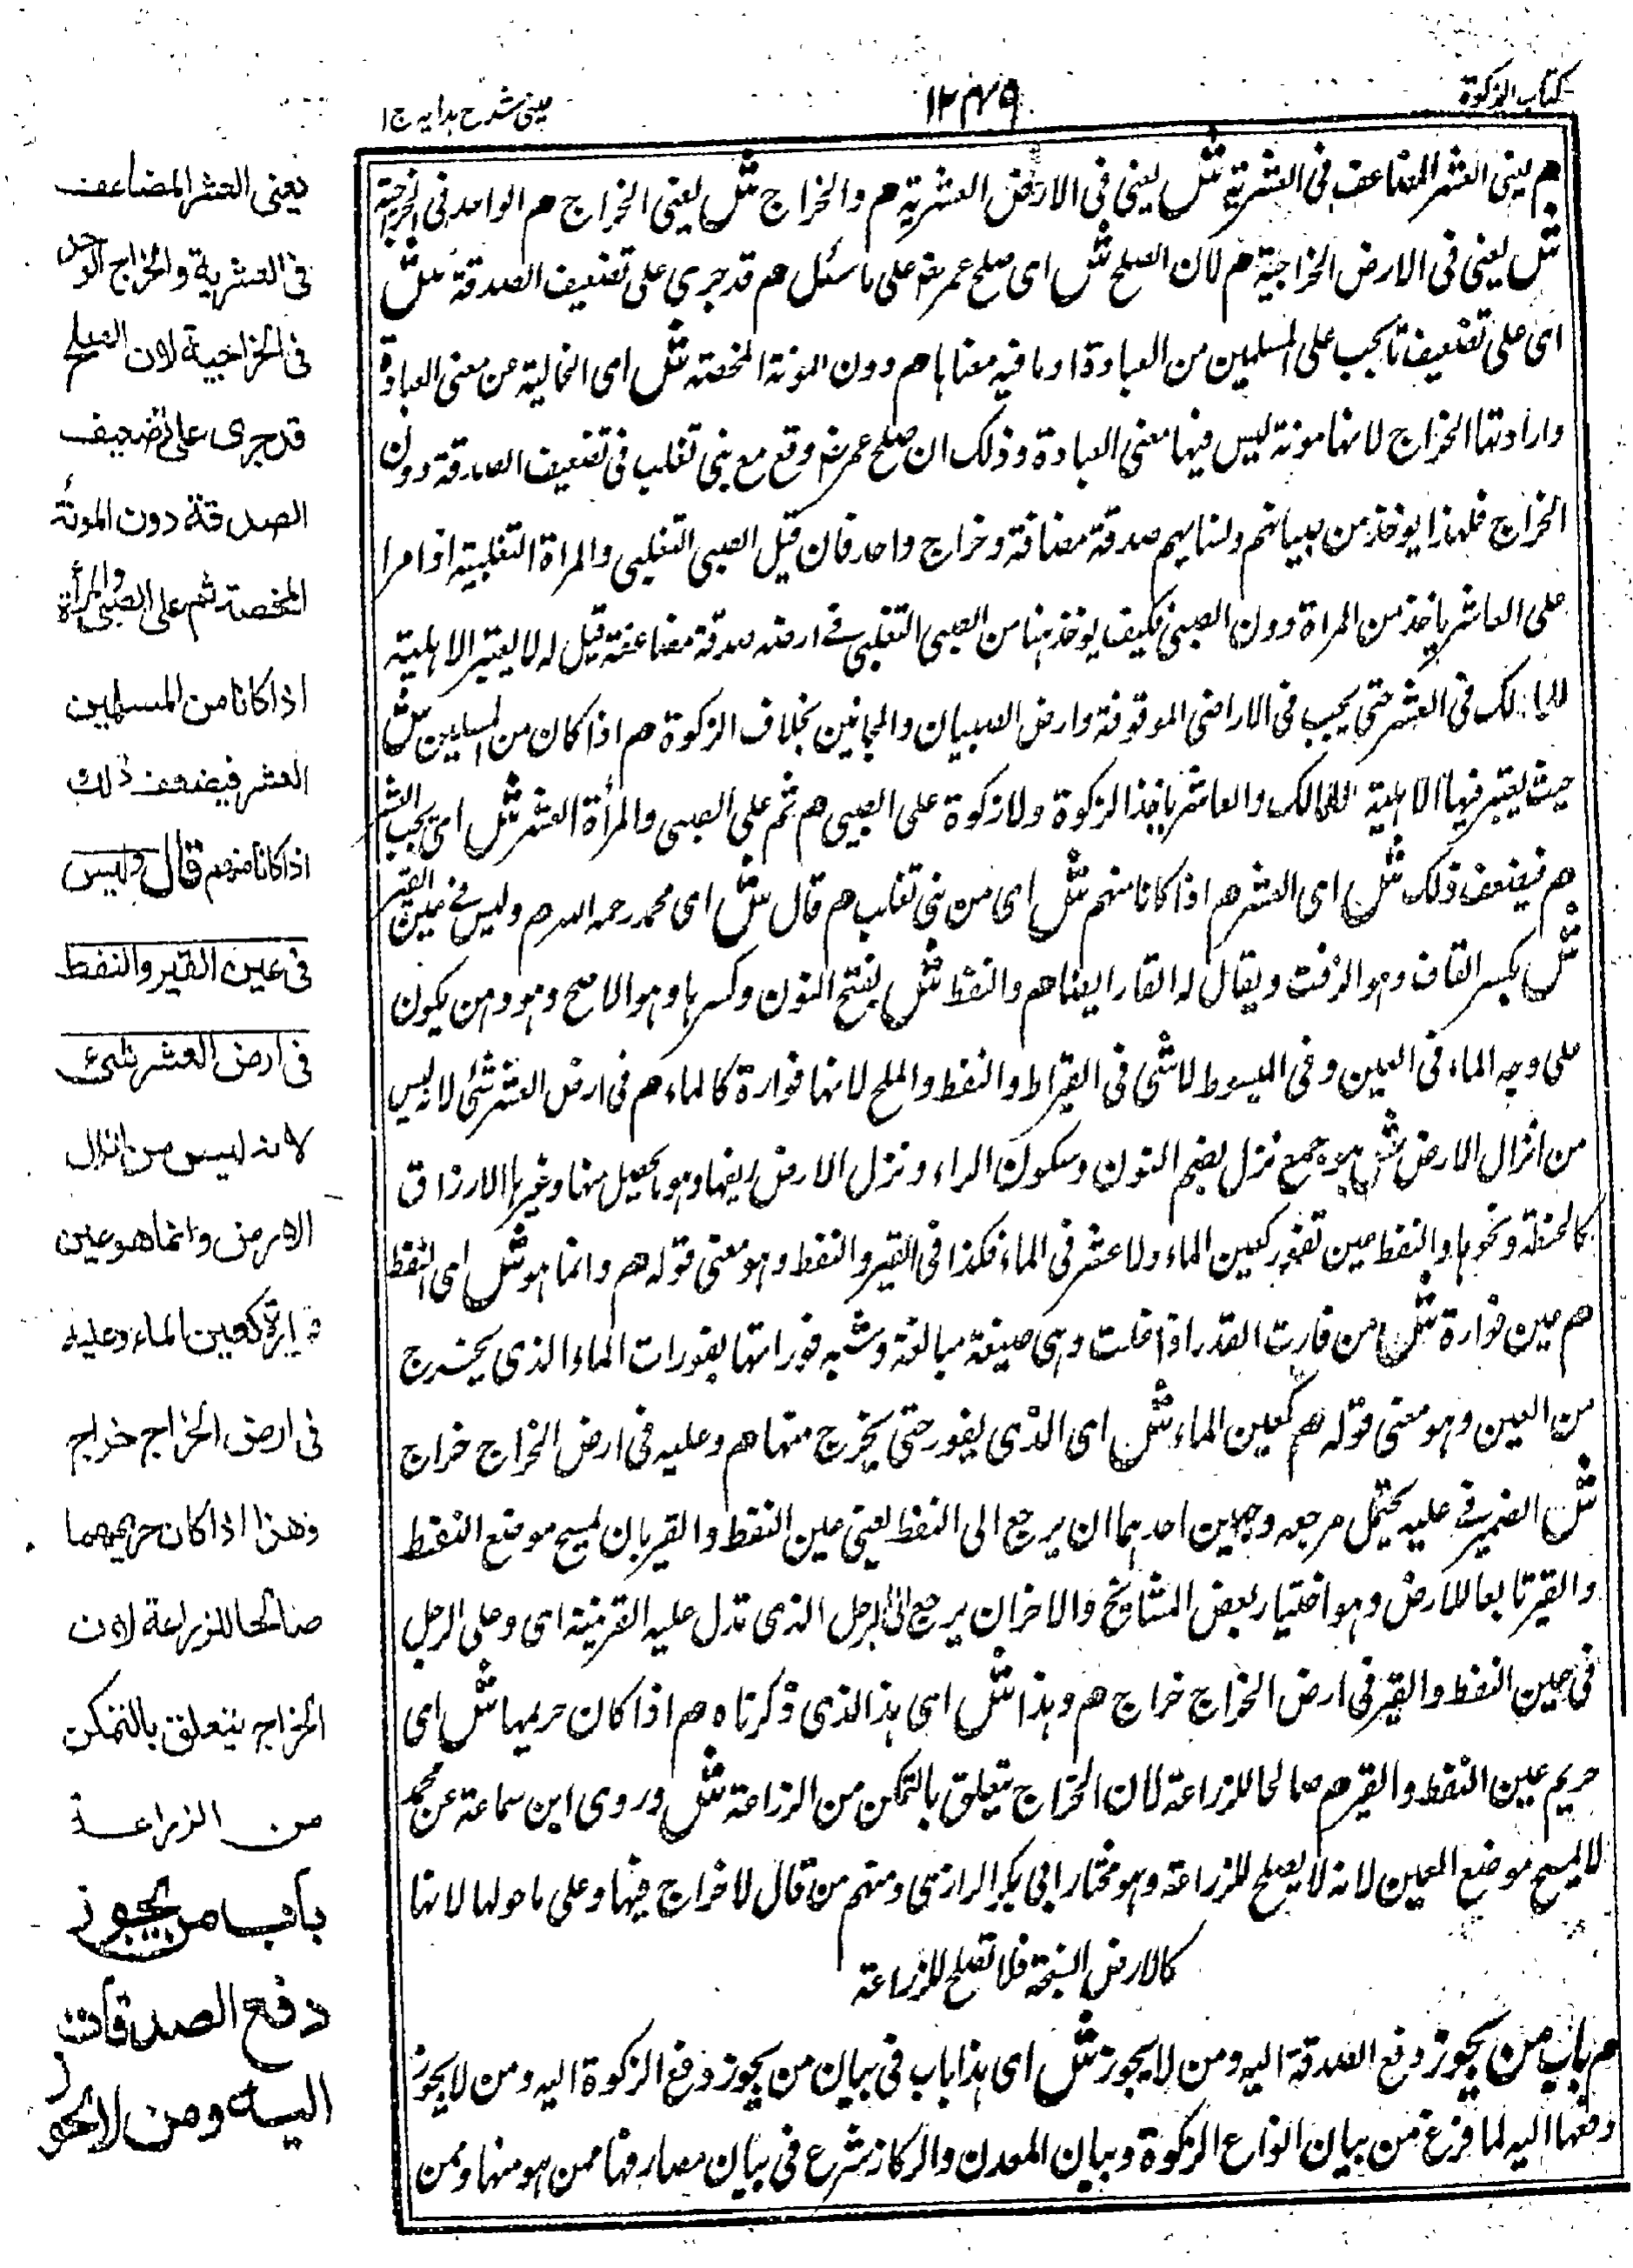 كتاب الزكوة
١٢٤٩
عينى شرح هدايه ج١
م يعنى العشر المضاعف فى العشرية ش يعنى فى الارض العشرية م والخراج ش يعنى الخراج م الواحد فى الخراجية
ش يعنى فى الارض الخراجية م لان الصلح ش اى صلح عمر رضه على ما سئل م قد جرى على تضعيف الصدقة ش
اى على تضعيف ما يجب على المسلمين من العبادة او ما فيه معناها م دون المونة المحضة ش اى الخالية عن معنى العبادة
وارادتها الخراج لانها مونة ليس فيها معنى العبادة وذلك ان صلح عمر رضه وقع مع بنى تغلب فى تضعيف الصدقة دون
الخراج فلهذا يوخذ من صبيانهم ونسايهم صدقة مضافة وخراج واحد فان قيل الصبى التغلبى والمراة التغلبية اذا مرا
على العاشر ياخذ من المراة دون الصبى فكيف يوخذ هنا من الصبى التغلبى فى ارضه صدقة مضاعفة قيل له لا يعتبر الاهلية
للمالك فى العشر حتى يجب فى الاراضى الموقوفة وارض الصبيان والمجانين بخلاف الزكوة م اذا كان من المسلمين ش
حيث يعتبر فيها الاهلية للمالك والعاشر ياخذ الزكوة ولا زكوة على الصبى م ثم على الصبى والمرأة العشر ش اى يجب العشر
م فيضعف ذلك ش اى العشر م اذا كانا منهم ش اى من بنى تغلب م قال ش اى محمد رحمه الله م وليس فى عين القير
ش بكسر القاف وهو الزفت ويقال له القار ايضا م والنفط ش بفتح النون وكسرها وهو الاصح وهو دهن يكون
على وجه الماء فى العين وفى المبسوط لا شى فى القيراط والنفط والملح لانها فوارة كالماء م فى ارض العشر شئى لانه ليس
من انزال الارض ش هو جمع نزل بضم النون وسكون الراء ونزل الارض ريعها وهو ما يحصل منها وغيرها الارزاق
كالحنطة ونحوها والنفط عين تفور كعين الماء ولا عشر فى الماء فكذا فى القير والنفط وهو معنى قوله م وانما هو ش اى النفط
م عين فوارة ش من فارت القدر اذا غلت وهى صيغة مبالغة وشبه فوراتها بفورات الماء الذى يخرج
من العين وهو معنى قوله م كعين الماء ش اى الذى يفور حتى يخرج منها م وعليه فى ارض الخراج خراج
ش الضمير فى عليه يحتمل مرجعه وجهين احدهما ان يرجع الى النفط يعنى عين النفط والقير بان يمسح موضع النفط
والقير تابعا للارض وهو اختيار بعض المشايخ والاخر ان يرجع الى الرجل الذى تدل عليه القرينة اى وعلى الرجل
فى عين النفط والقير فى ارض الخراج خراج م وهذا ش اى هذا الذى ذكرناه م اذا كان حريمها ش اى
حريم عين النفط والقير م صالحا للزراعة لان الخراج يتعلق بالتمكن من الزراعة ش وروى ابن سماعة عن محمد
لا يمسح موضع العين لانه لا يصلح للزراعة وهو مختار ابى بكر الرازى ومنهم من قال لا خراج فيها وعلى ما حولها لانها
كالارض السبخة فلا تصلح للزراعة
م باب من يجوز دفع الصدقة اليه ومن لا يجوز ش اى هذا باب فى بيان من يجوز دفع الزكوة اليه ومن لا يجوز
دفعها اليه لما فرغ من بيان انواع الزكوة وبيان المعدن والركاز شرع فى بيان مصارفها ممن هو منها وممن
يعنى العشر المضاعف
فى العشرية والخراج الواحد
فى الخراجية لان الصلح
قد جرى على تضعيف
الصدقة دون المونة
المحضة ثم على الصبى والمرأة
اذا كانا من المسلمين
العشر فيضعف ذلك
اذا كانا منهم قال وليس
فى عين القير والنفط
فى ارض العشر شئ
لانه ليس من انزال
الارض وانما هو عين
فوارة كعين الماء وعليه
فى ارض الخراج خراج
وهذا اذا كان حريمهما
صالحا للزراعة لان
الخراج يتعلق بالتمكن
من الزراعة
باب من يجوز
دفع الصدقات
اليه ومن لا يجوز